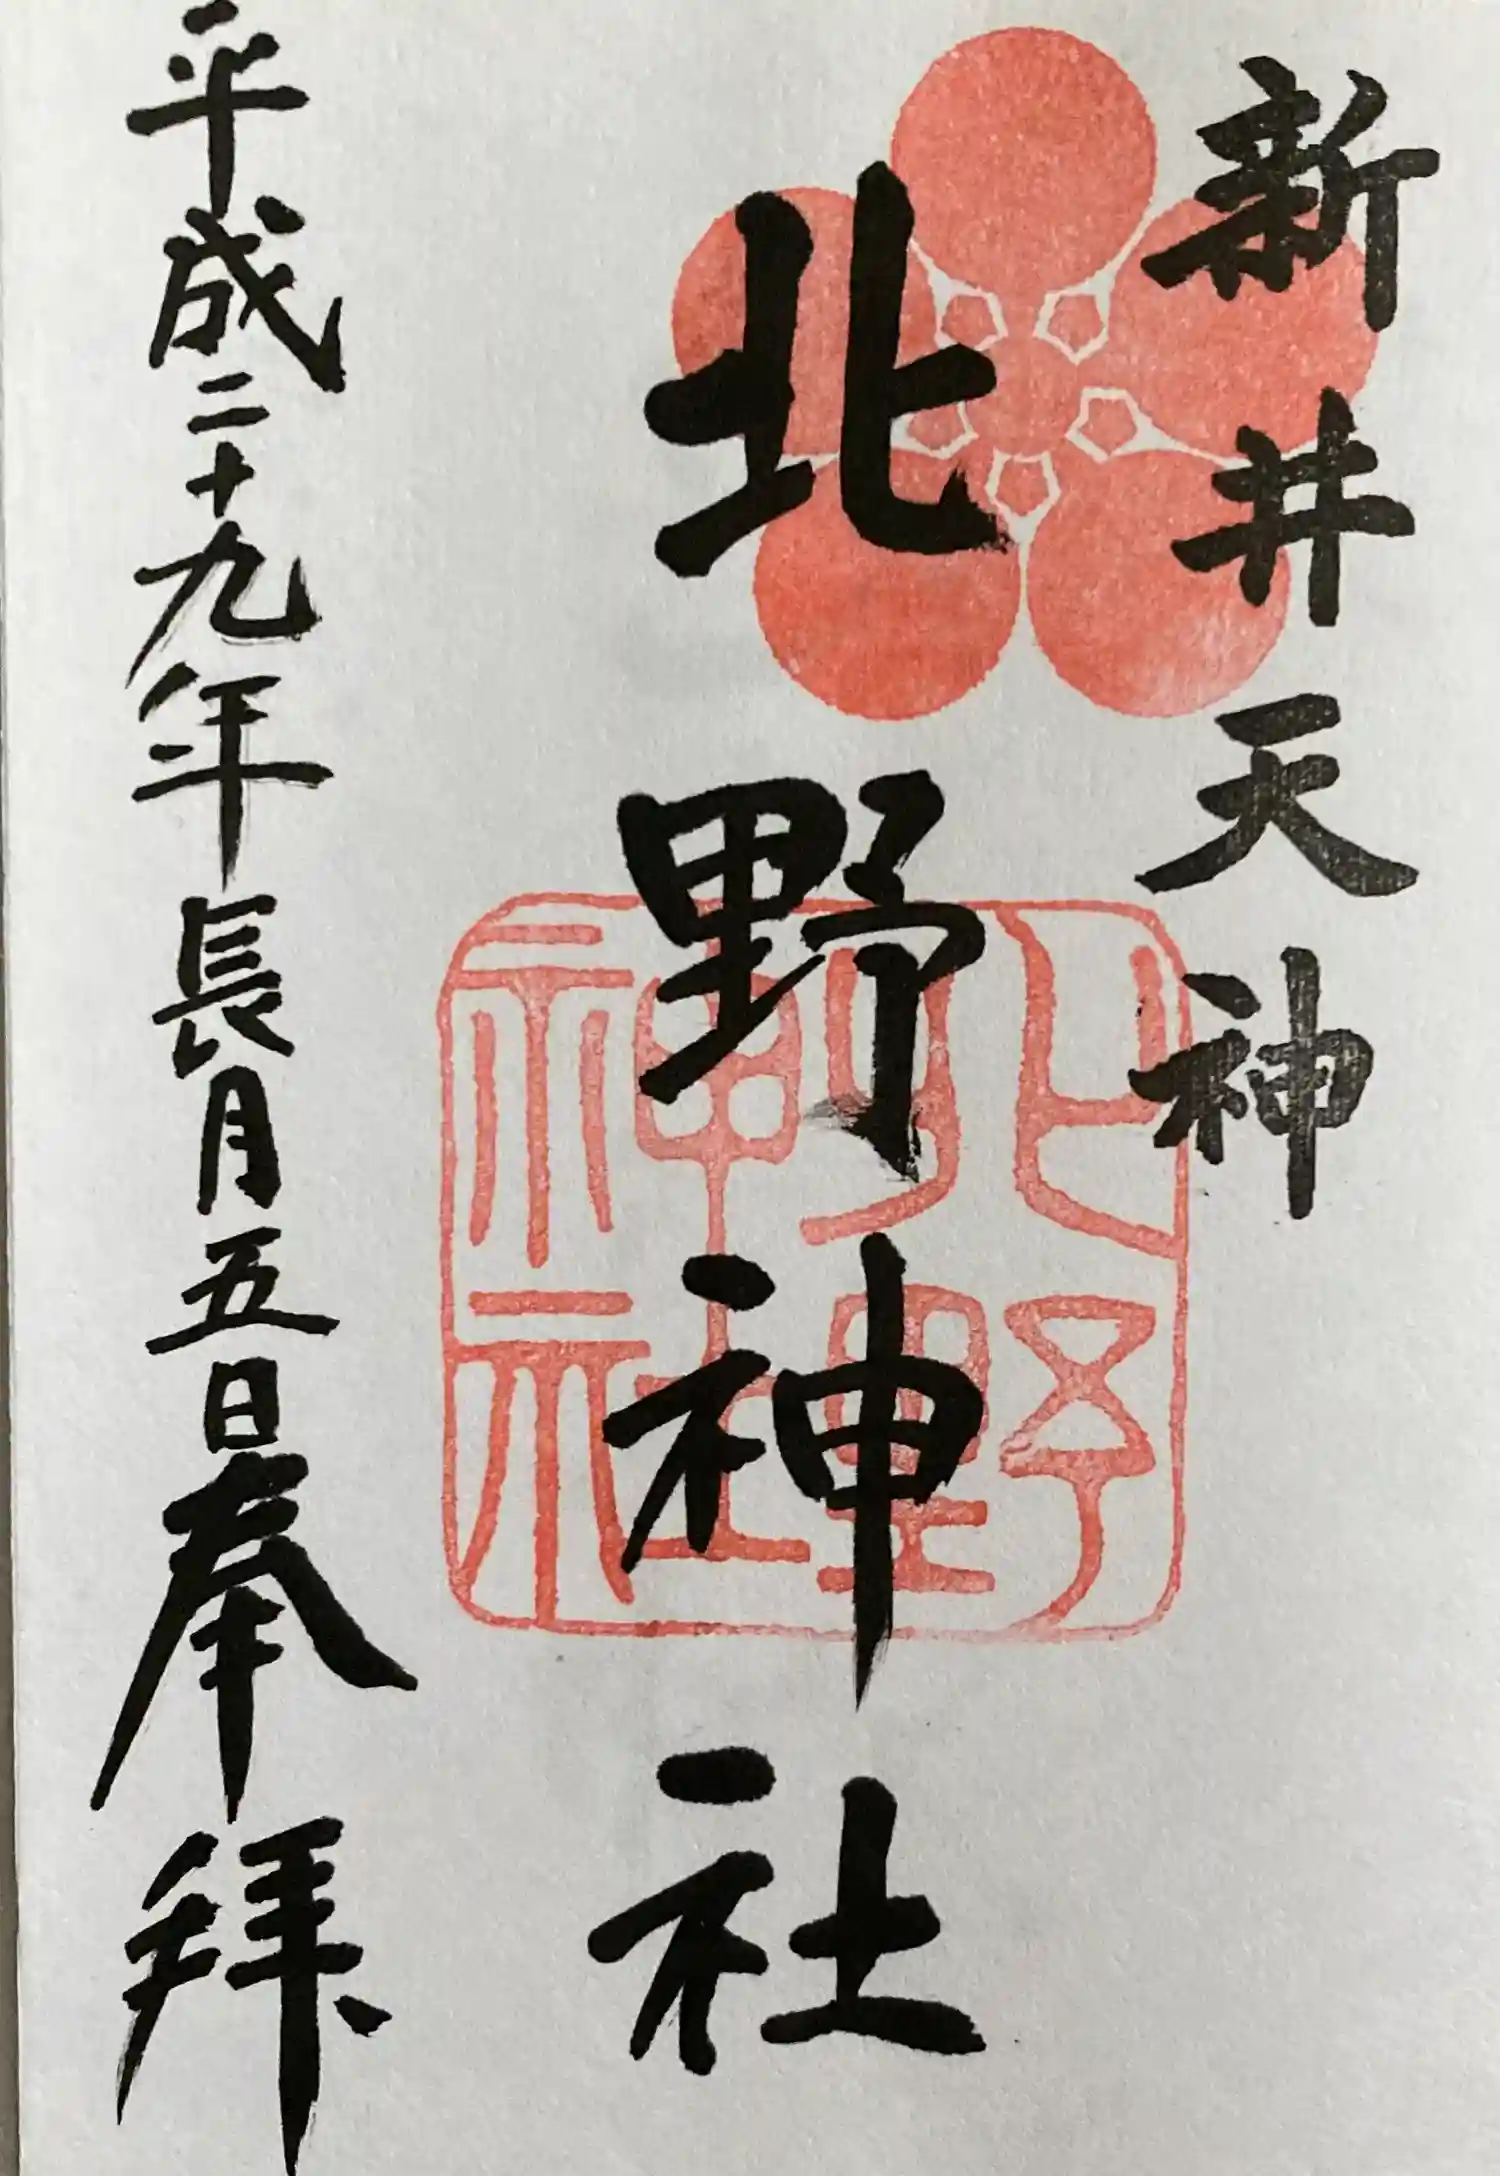 新井天神
北野神社
北野神社
平成二十九年長月五日奉拝